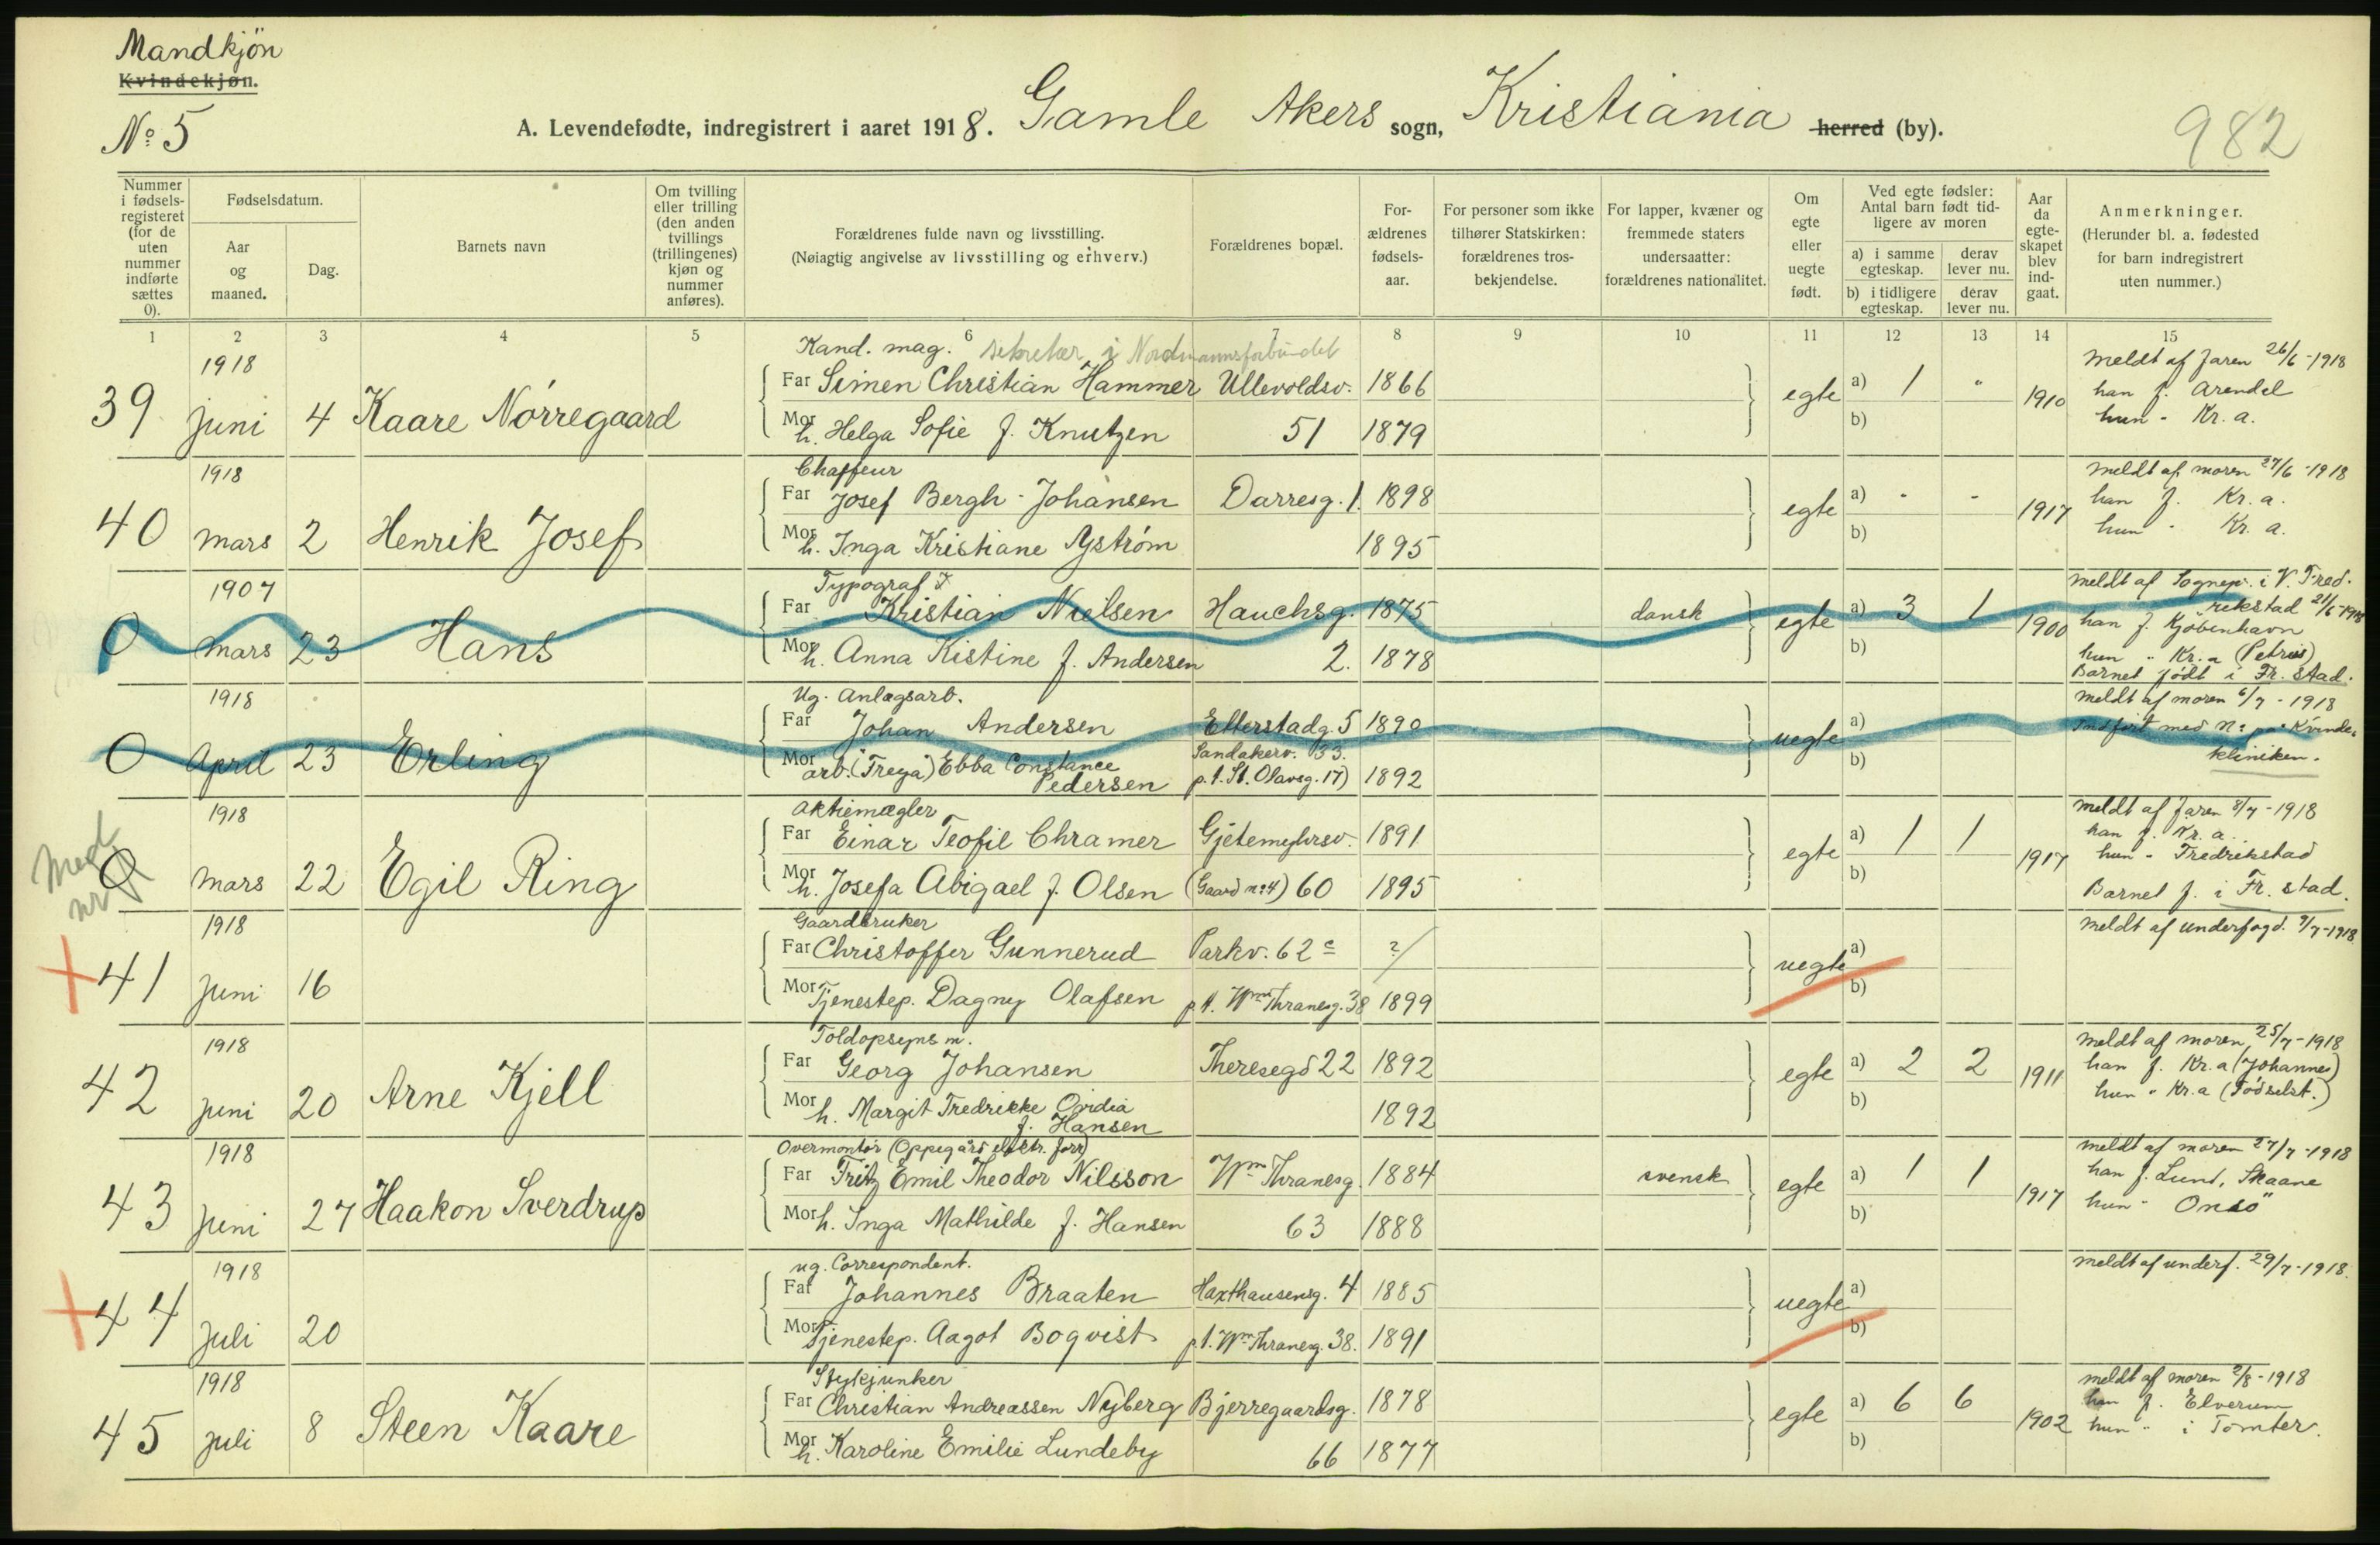 Mandkjön
Kvindekjøn.
No 5
A. Levendefødte, indregistrert i aaret 1918. Gamle Akers sogn, Kristiania herred (by).
982
Nummer i fødsels-registeret (for de uten nummer indførte sættes 0).
Fødselsdatum.
Aar og maaned.
Dag.
Barnets navn
Om tvilling eller trilling (den anden tvillings (trillingenes) kjøn og nummer anføres).
Forældrenes fulde navn og livsstilling.
(Nøiagtig angivelse av livsstilling og erhverv.)
Forældrenes bopæl.
For-ældrenes fødsels-aar.
For personer som ikke tilhører Statskirken: forældrenes tros-bekjendelse.
For lapper, kvæner og fremmede staters undersaatter: forældrenes nationalitet.
Om egte eller uegte født.
Ved egte fødsler: Antal barn født tid-ligere av moren
a) i samme egteskap.
derav lever nu.
b) i tidligere egteskap.
derav lever nu.
Aar da egte-skapet blev ind-gaat.
Anmerkninger.
(Herunder bl. a. fødested for barn indregistrert uten nummer.)
1 2 3 4 5 6 7 8 9 10 11 12 13 14 15
1918 Kand. mag. sekretær i Nordmannsforbundet meldt af faren 26/6-1918
39 juni 4 Kaare Nörregaard Far Simen Christian Hammer Ullevoldsv. 1866 egte a) 1 " 1910 han f. Arendal
Mor h. Helga Sofie f. Knutzen 51 1879 b) hun " Kr. a.
1918 Chaffeur meldt af moren 27/6-1918
40 mars 2 Henrik Josef Far Josef Bergh-Johansen Darresg. 1. 1898 egte a) - - 1917 han f. Kr. a.
Mor h. Inga Kristiane Nyström 1895 b) hun " Kr. a.
1907 Typograf meldt af Sognepr. i V. Fred-
rekstad 21/6-1918
0 mars 23 Hans Far Kristian Nielsen Hauchsg. 1875 dansk egte a) 3 1 1900 han f. Kjöbenhavn
Mor h. Anna Kistine f. Andersen 2. 1878 b) hun " Kr. a (Petrus)
Barnet födt i Fr. stad.
1918 Ug. Anlægsarb. meldt af moren 6/7-1918
0 April 23 Erling Far Johan Andersen Etterstadg. 5 1890 uegte a) Indfört med No på Kvinde-
Sandakerv. 33.
Mor arb. (Freya) Ebba Constance Pedersen p.t. St. Olavsg. 17) 1892 b) kliniken.
1918 Aktiemægler meldt af faren 8/7-1918
Med nr
0 mars 22 Egil Ring Far Einar Teofil Chramer Gjetemyhrsv. 1891 egte a) 1 1 1917 han f. Kr. a.
hun " Fredrikstad
Mor h. Josefa Abigael f. Olsen (Gaard no 4) 60 1895 b) Barnet f. i Fr. stad.
1918 Gaardbruker meldt af underfogd. 9/7-1918
41 juni 16 Far Christoffer Gunnerud Parkv. 62 c ? uegte a)
Mor Tjenestep. Dagny Olafsen p.t. Wm Thranesg. 38 1899 b)
1918 Toldopsyns m. meldt af moren 25/7-1918
42 juni 20 Arne Kjell Far Georg Johansen Theresegd 22 1892 egte a) 2 2 1911 han f. Kr. a (Johannes)
Mor h. Margit Fredrikke Ovidia f. Hansen 1892 b) hun " Kr. a (Födselst.)
1918 Overmontör (Oppegård elektr. forr) meldt af moren 27/7-1918
43 juni 27 Haakon Sverdrup Far Fritz Emil Theodor Nilsson Wm Thranesg. 1884 svensk egte a) 1 1 1917 han f. Lund, Skaane
Mor h. Inga Mathilde f. Hansen 63 1888 b) hun " Onsö
1918 ug. Correspondent. meldt af underf. 29/7-1918.
44 juli 20 Far Johannes Braaten Haxthausensg. 4 1885 uegte a)
Mor Tjenestep. Aagot Boqvist p.t. Wm Thranesg. 38. 1891 b)
1918 Stykjunker meldt af moren 2/8-1918
45 juli 8 Steen Kaare Far Christian Andreassen Nyberg Bjerregaardsg. 1878 egte a) 6 6 1902 han f. Elverum
Mor h. Karoline Emilie Lundeby 66 1877 b) hun " i Tomter.